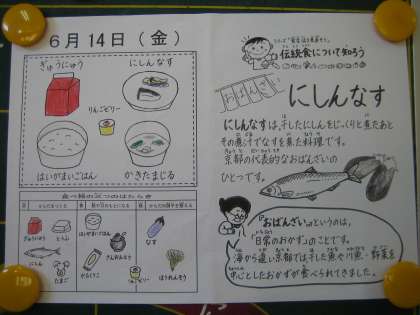 6月14日（金）
ぎゅうにゅう
にしんなす
りんごゼリー
はいがまいごはん
かきたまじる
食べ物の三つのはたらき
ぎゅうにゅう
とうふ
にしん
たまご
はいがまいごはん
さんおんとう
りんごゼリー
なす
ほうれんそう
伝統食について知ろう
おばんざい
にしんなす
にしんなすは、干したにしんをじっくりと煮たあと
その煮汁でなすを煮た料理です。
京都の代表的なおばんざいの
ひとつです。
「おばんざい」というのは、
「日常のおかず」のことです。
海から遠い京都では、干した魚や川魚、野菜を
中心としたおかずが食べられてきました。